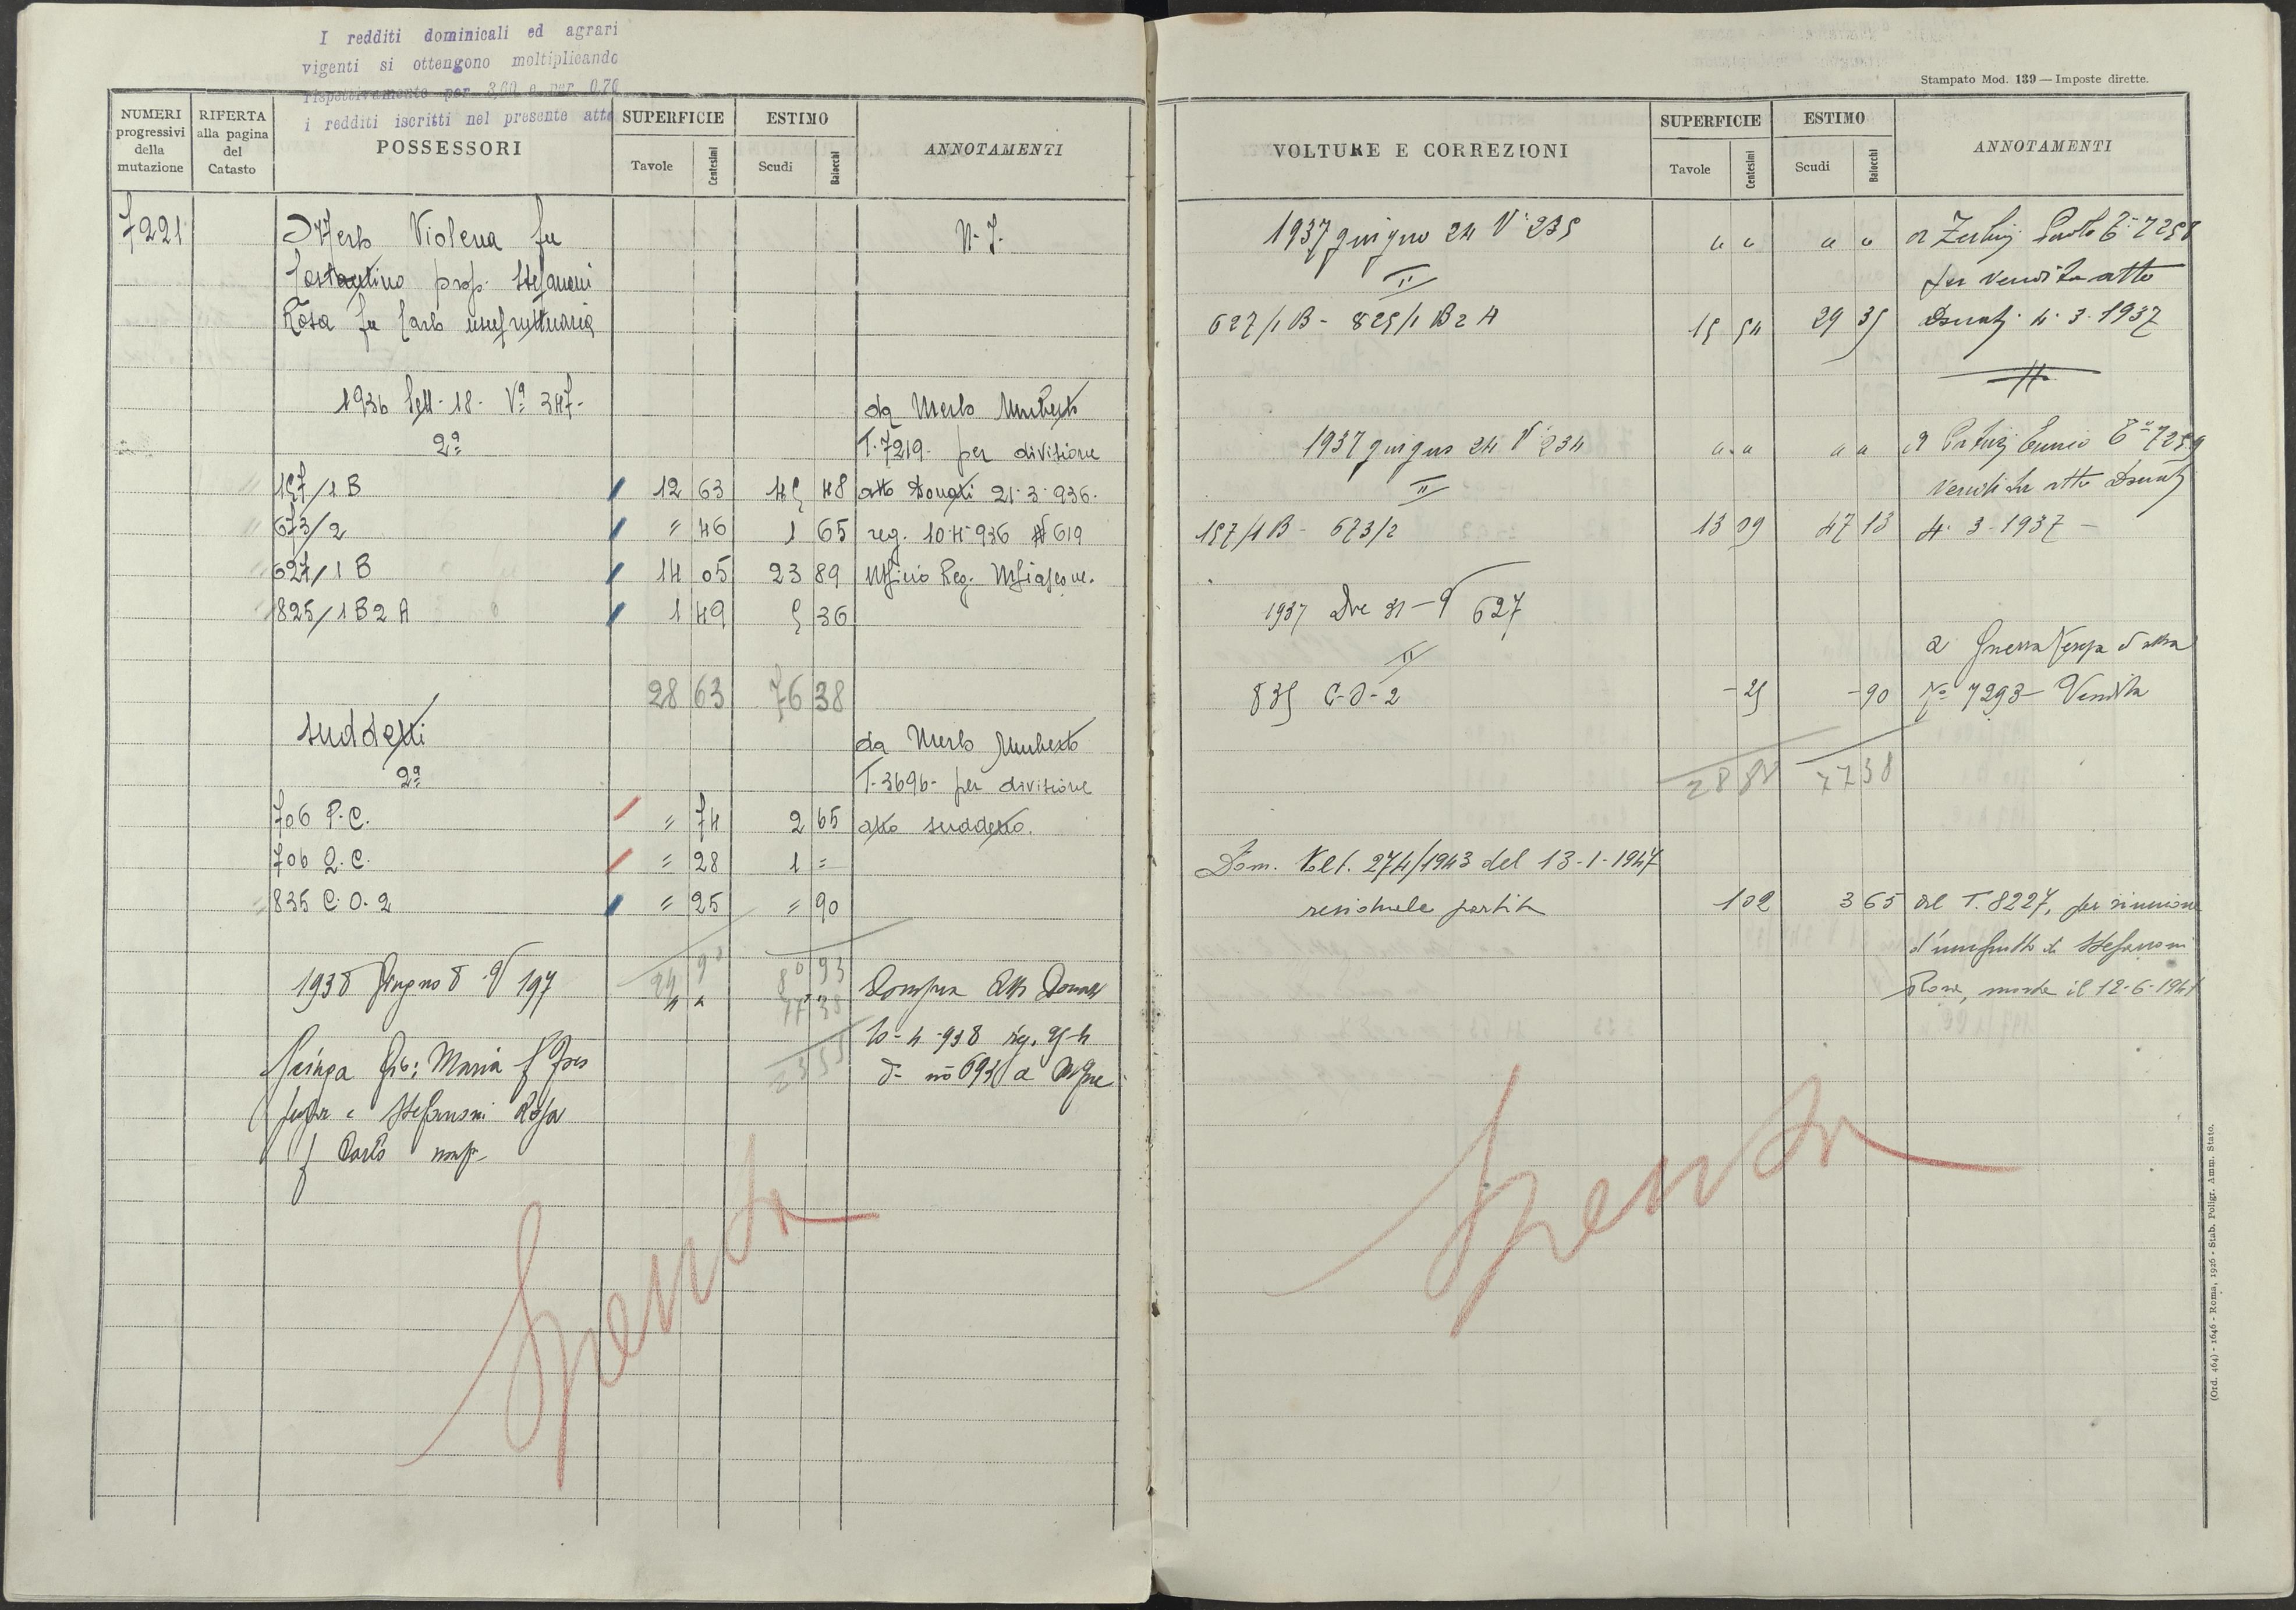 I redditi dominicali ed agrari
vigenti si ottengono moltiplicando
rispettivamente per 3,60 e per 0,70
i redditi iscritti nel presente atto
NUMERI progressivi della mutazione
RIFERTA alla pagina del Catasto
POSSESSORI
SUPERFICIE
Tavole Centesimi
ESTIMO
Scudi Baiocchi
ANNOTAMENTI
7221 Merlo Violena fu N. I.
Costantino prop. Stefanoni
Rosa fu Carlo usufruttuaria
1936 Sett. 18. Vª 347. da Merlo Umberto
2ª T. 7219. per divisione
157/1 B 12 63 45 48 atto Donati 21-3-936.
673/2 " 46 1 65 reg. 10-4-936 № 619
627/1 B 14 05 23 89 Ufficio Reg.
825/1 B 2 A 1 49 5 36
28 63 76 38
suddetti da Merlo Umberto
2ª T. 3696- per divisione
706 P.C. " 74 2 65 atto suddetto.
706 Q.C. " 28 1 =
835 C.O.2 " 25 " 90
80 93
1938 Giugno 8 V 197 " " 77 38 Compra Atto Donati
10-4-938 reg.
Maria f
Stefanoni Rosa
f Carlo
Spenta
Stampato Mod. 139 — Imposte dirette.
VOLTURE E CORREZIONI
SUPERFICIE
Tavole Centesimi
ESTIMO
Scudi Baiocchi
ANNOTAMENTI
1937 giugno 24 V. 235 " " " " a Paolo
II per vendita atto
627/1 B - 825/1 B 2 A 15 54 29 35 Donati 4. 3. 1937
1937 giugno 24 V. 234 " " " " a Ennio
II vendita atto Donati
157/1 B - 673/2 13 09 47 13 4. 3. 1937 -
1937 Dre 31 - V 627
II a Guerra
835 C-O-2 - 25 - 90 Nº 7293 - Vendita
28 88 77 38
Dom. Volt. 274/1943 del 13-1-1947
residuale partita 1 02 3 65 al T. 8227, per riunione
d'usufrutto di Stefanoni
Rosa, morta il 12-6-1941
Spenta
(Ord. 464) - 1646 - Roma, 1926 - Stab. Poligr. Amm. Stato.